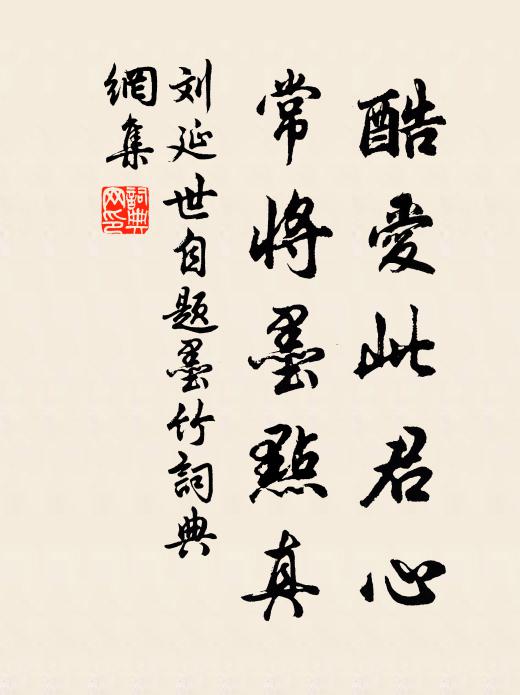 酷愛此君心
常將墨點真
刘延世自题墨竹詞典
網集
詞典
网印